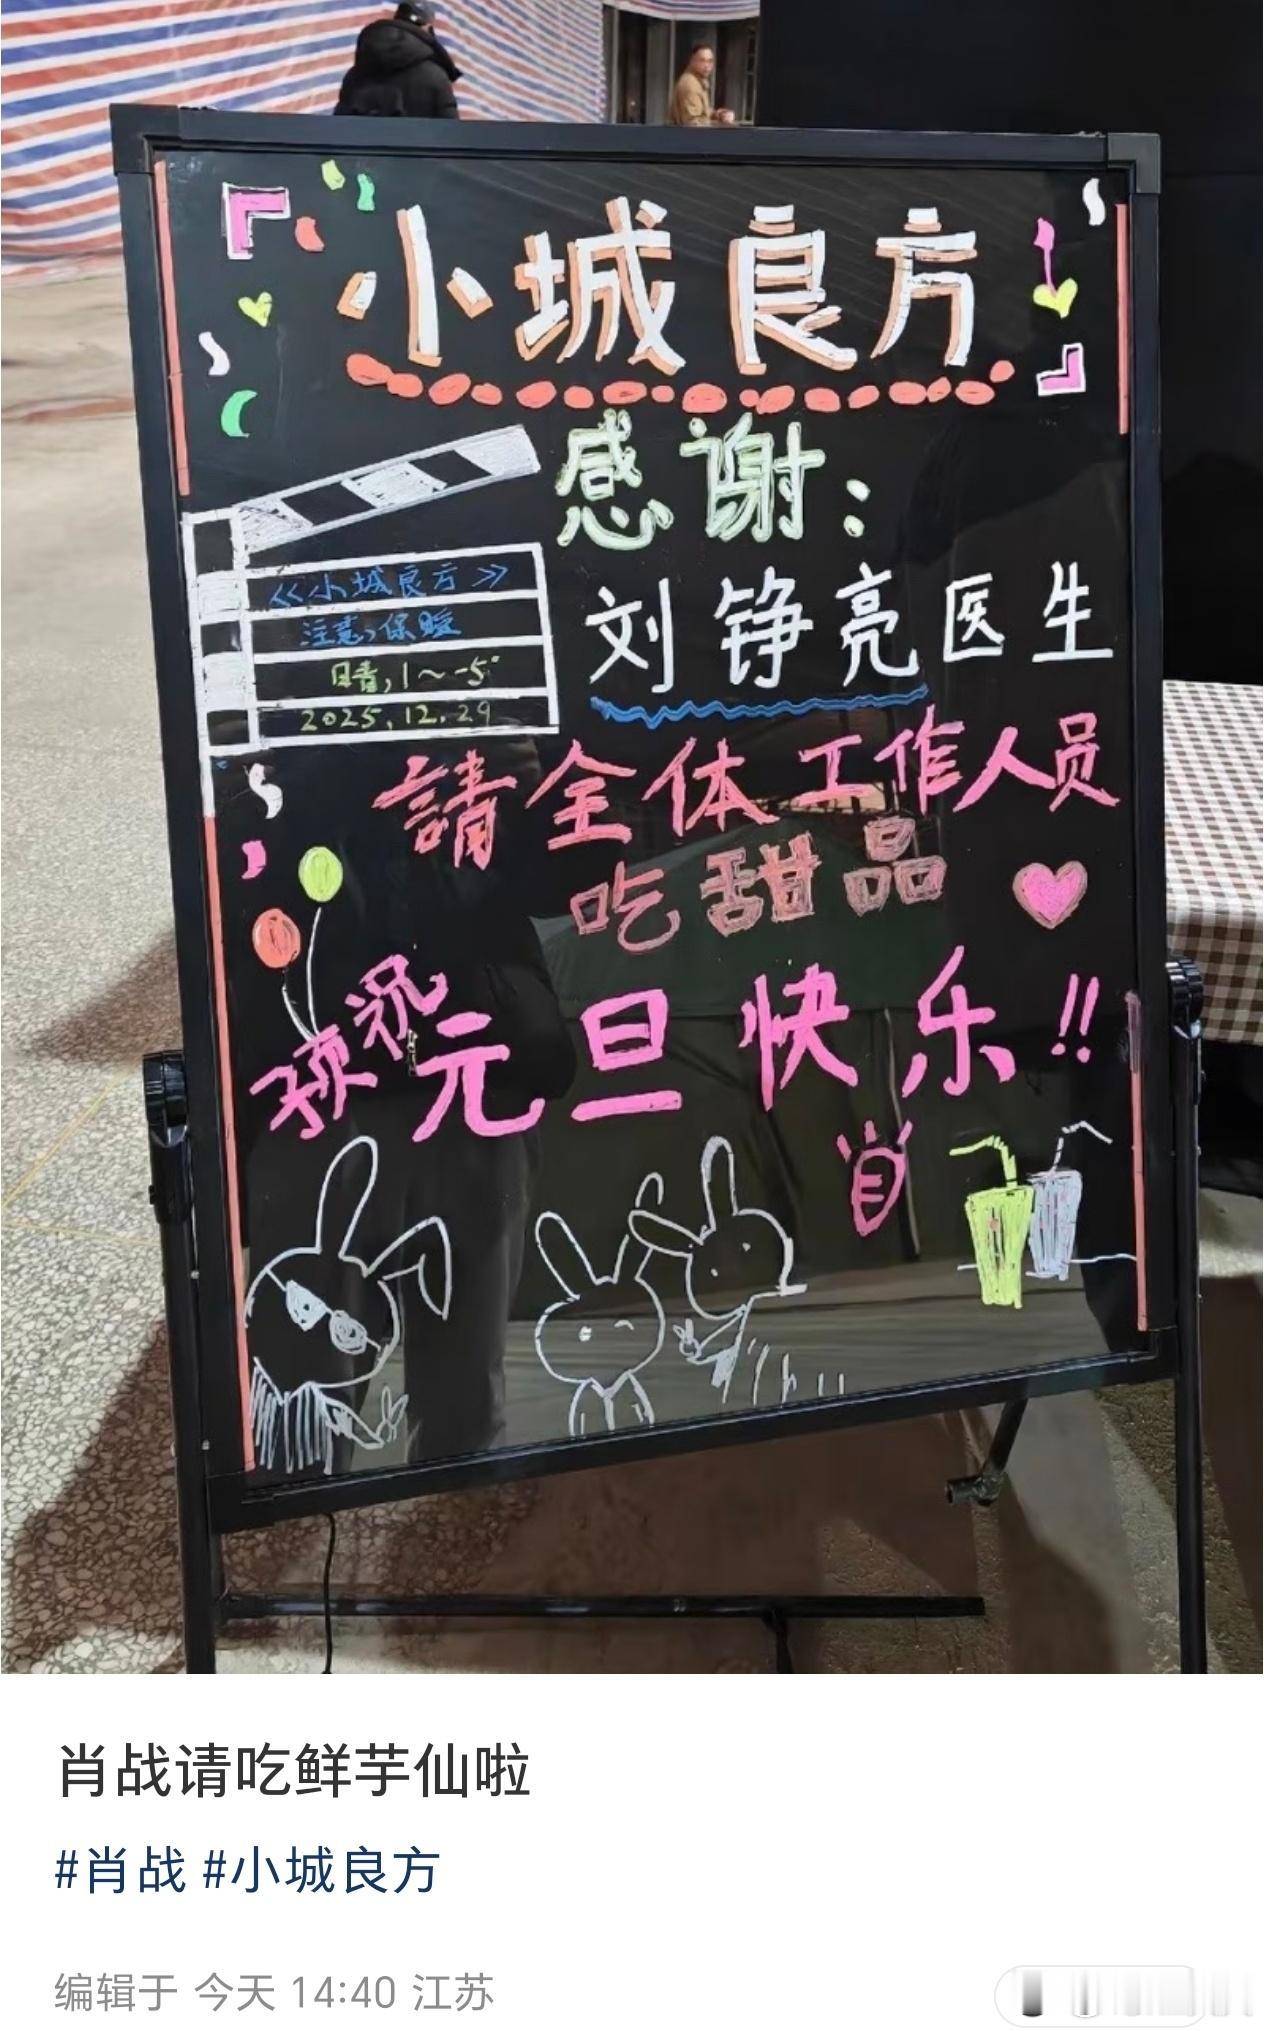 小城良方
感谢：
《小城良方》
注意，保暖
晴，1～-5°
2025.12.29
刘铮亮医生
請全体工作人员
吃甜品
预祝
元旦快乐!!
肖战请吃鲜芋仙啦
#肖战 #小城良方
编辑于 今天 14:40 江苏